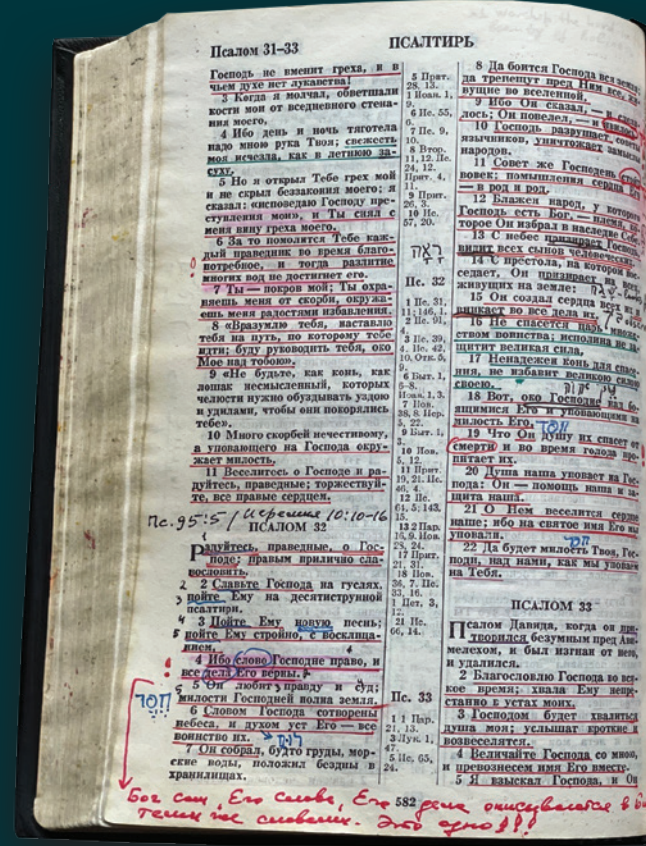 Псалом 31–33
ПСАЛТИРЬ
Господь не вменит греха, и в
чьем духе нет лукавства!
3 Когда я молчал, обветшали
кости мои от вседневного стена-
ния моего,
4 Ибо день и ночь тяготела
надо мною рука Твоя; свежесть
моя исчезла, как в летнюю за-
суху.
5 Но я открыл Тебе грех мой
и не скрыл беззакония моего; я
сказал: «исповедаю Господу пре-
ступления мои», и Ты снял с
меня вину греха моего.
6 За то помолится Тебе каж-
дый праведник во время благо-
потребное, и тогда разлитие
многих вод не достигнет его.
7 Ты — покров мой; Ты охра-
няешь меня от скорби, окружа-
ешь меня радостями избавления.
8 «Вразумлю тебя, наставлю
тебя на путь, по которому тебе
идти; буду руководить тебя, око
Мое над тобою».
9 «Не будьте, как конь, как
лошак несмысленный, которых
челюсти нужно обуздывать уздою
и удилами, чтобы они покорялись
тебе».
10 Много скорбей нечестивому,
а уповающего на Господа окру-
жает милость.
11 Веселитесь о Господе и ра-
дуйтесь, праведные; торжествуй-
те, все правые сердцем.
Пс. 95:5 / Иеремия 10:10-16
ПСАЛОМ 32
Радуйтесь, праведные, о Гос-
поде; правым прилично сла-
вословить.
2 Славьте Господа на гуслях,
пойте Ему на десятиструнной
псалтири.
3 Пойте Ему новую песнь;
пойте Ему стройно, с восклица-
нием.
4 Ибо слово Господне право, и
все дела Его верны.
5 Он любит правду и суд;
милости Господней полна земля.
חֶסֶד
6 Словом Господа сотворены
небеса, и духом уст Его — все
воинство их.
7 Он собрал, будто груды, мор-
ские воды, положил бездны в
хранилищах.
5 Прит.
28, 13.
1 Иоан. 1,
9.
6 Пс. 55,
7 Пс. 9,
10.
8 Втор.
11, 12. Пс.
24, 12.
Прит. 4,
11.
9 Прит.
26, 3.
10 Ис.
57, 20.
Пс. 32
1 Пс. 31,
11; 146, 1.
2 Пс. 91,
4.
3 Пс. 39,
4. Ис. 42,
10. Отк. 5,
9.
6 Быт. 1,
6–8.
Иоан. 1, 3.
7 Иов.
38, 8. Иер.
5, 22.
9 Быт. 1,
3.
10 Иов.
5, 12.
11 Прит.
19, 21. Ис.
46, 4.
12 Пс.
64, 5; 143,
15.
13 2 Пар.
16, 9. Иов.
28, 24.
17 Прит.
21, 31.
18 Иов.
36, 7. Пс.
33, 16.
1 Пет. 3,
12.
21 Ис.
66, 14.
Пс. 33
1 1 Цар.
21, 13.
3 Лук. 1,
47.
5 Пс. 65,
24.
8 Да боится Господа вся земля;
да трепещут пред Ним все, жи-
вущие во вселенной,
9 Ибо Он сказал, — и сдела-
лось; Он повелел, — и явилось.
10 Господь разрушает советы
язычников, уничтожает замыслы
народов.
11 Совет же Господень стоит
вовек; помышления сердца Его
— в род и род.
12 Блажен народ, у которого
Господь есть Бог, — племя, ко-
торое Он избрал в наследие Себе.
13 С небес призирает Господь,
видит всех сынов человеческих;
14 С престола, на котором вос-
седает, Он призирает на всех,
живущих на земле:
15 Он создал сердца всех их и
вникает во все дела их.
16 Не спасется царь множе-
ством воинства; исполина не за-
щитит великая сила.
17 Ненадежен конь для спасе-
ния, не избавит великою силою
своею.
18 Вот, око Господне над бо-
ящимися Его и уповающими на
милость Его,
19 Что Он душу их спасет от
смерти и во время голода про-
питает их.
20 Душа наша уповает на Гос-
пода: Он — помощь наша и за-
щита наша.
21 О Нем веселится сердце
наше; ибо на святое имя Его мы
уповали.
22 Да будет милость Твоя, Гос-
поди, над нами, как мы уповаем
на Тебя.
ПСАЛОМ 33
Псалом Давида, когда он при-
творился безумным пред Ави-
мелехом, и был изгнан от него,
и удалился.
2 Благословлю Господа во вся-
кое время; хвала Ему непре-
станно в устах моих.
3 Господом будет хвалиться
душа моя; услышат кроткие и
возвеселятся.
4 Величайте Господа со мною,
и превознесем имя Его вместе.
5 Я взыскал Господа, и Он
582
Бог сам, Его слово, Его дела описываются в
теми же словами. Это одно!!!